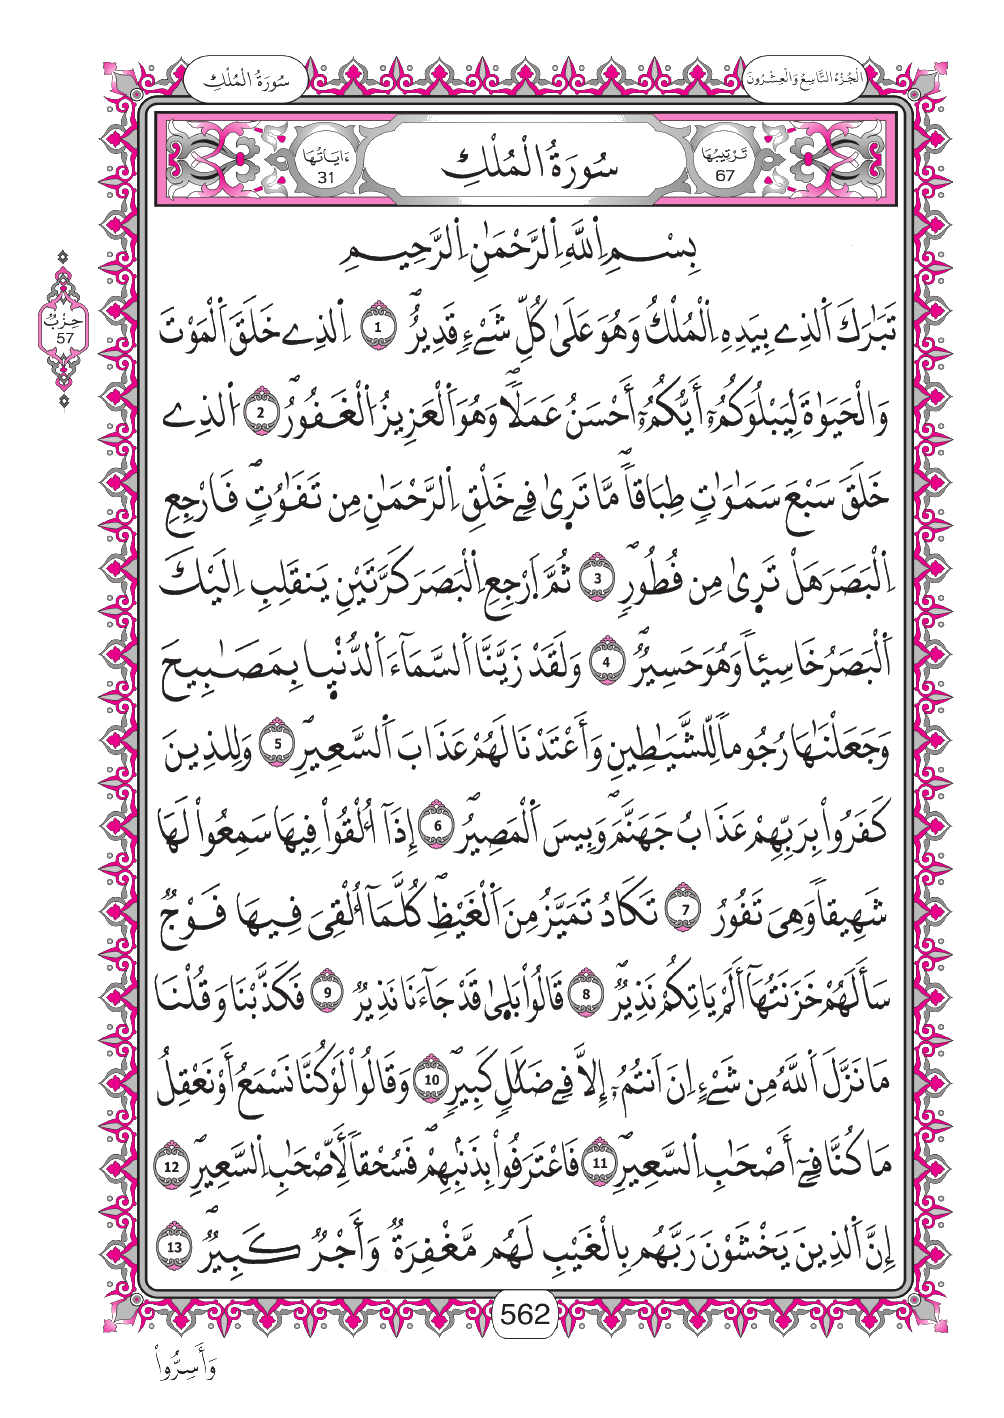 الْجُزْءُ التَّاسِعُ وَالْعِشْرُونَ
سُورَةُ الْمُلْكِ
تَرْتِيبُهَا 67
سُورَةُ الْمُلْكِ
ءَايَاتُهَا 31
بِسْمِ اِ۬للَّهِ اِ۬لرَّحْمَٰنِ اِ۬لرَّحِيمِ
حِزْبٌ 57
تَبَٰرَكَ اَ۬لذِے بِيَدِهِ اِ۬لْمُلْكُ وَهُوَ عَلَىٰ كُلِّ شَےْءٖ قَدِيرٌ 1 اِ۬لذِے خَلَقَ اَ۬لْمَوْتَ
وَالْحَيَوٰةَ لِيَبْلُوَكُمُۥٓ أَيُّكُمُۥٓ أَحْسَنُ عَمَلاٗ وَهُوَ اَ۬لْعَزِيزُ اُ۬لْغَفُورُ 2 اُ۬لذِے
خَلَقَ سَبْعَ سَمَٰوَٰتٖ طِبَاقاٗ مَّا تَرٜىٰ فِے خَلْقِ اِ۬لرَّحْمَٰنِ مِن تَفَٰوُتٖ فَارْجِعِ
اِ۬لْبَصَرَ هَلْ تَرٜىٰ مِن فُطُورٖ 3 ثُمَّ اَ۪رْجِعِ اِ۬لْبَصَرَ كَرَّتَيْنِ يَنقَلِبِ اِلَيْكَ
اَ۬لْبَصَرُ خَاسِئاٗ وَهُوَ حَسِيرٌ 4 وَلَقَدْ زَيَّنَّا اَ۬لسَّمَآءَ اَ۬لدُّنْيٜا بِمَصَٰبِيحَ
وَجَعَلْنَٰهَا رُجُوماٗ لِّلشَّيَٰطِينِ وَأَعْتَدْنَا لَهُمْ عَذَابَ اَ۬لسَّعِيرِ 5 وَلِلذِينَ
كَفَرُواْ بِرَبِّهِمْ عَذَابُ جَهَنَّمَ وَبِيسَ اَ۬لْمَصِيرُ 6 إِذَآ أُلْقُواْ فِيهَا سَمِعُواْ لَهَا
شَهِيقاٗ وَهِيَ تَفُورُ 7 تَكَادُ تَمَيَّزُ مِنَ اَ۬لْغَيْظِ كُلَّمَآ أُلْقِيَ فِيهَا فَوْجٌ
سَأَلَهُمْ خَزَنَتُهَآ أَلَمْ يَاتِكُمْ نَذِيرٌ 8 قَالُواْ بَلٜىٰ قَدْ جَآءَنَا نَذِيرٌ 9 فَكَذَّبْنَا وَقُلْنَا
مَا نَزَّلَ اَ۬للَّهُ مِن شَےْءٍ اِنَ اَنتُمُۥٓ إِلَّا فِے ضَلَٰلٖ كَبِيرٖ 10 وَقَالُواْ لَوْ كُنَّا نَسْمَعُ أَوْ نَعْقِلُ
مَا كُنَّا فِےٓ أَصْحَٰبِ اِ۬لسَّعِيرِ 11 فَاعْتَرَفُواْ بِذَنۢبِهِمْ فَسُحْقاٗ لِّأَصْحَٰبِ اِ۬لسَّعِيرِ 12
إِنَّ اَ۬لذِينَ يَخْشَوْنَ رَبَّهُم بِالْغَيْبِ لَهُم مَّغْفِرَةٌ وَأَجْرٌ كَبِيرٌ 13
562
وَأَسِرُّواْ